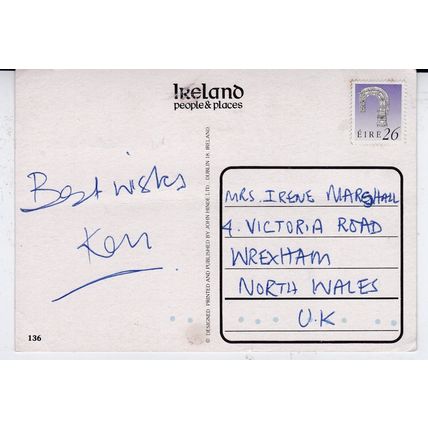 IRELAND
people & places
ÉIRE 26
Best wishes
Ken
© DESIGNED PRINTED AND PUBLISHED BY JOHN HINDE LTD., DUBLIN 18, IRELAND.
MRS. IRENE MARSHALL
4. VICTORIA ROAD
WREXHAM
NORTH WALES
U.K
136